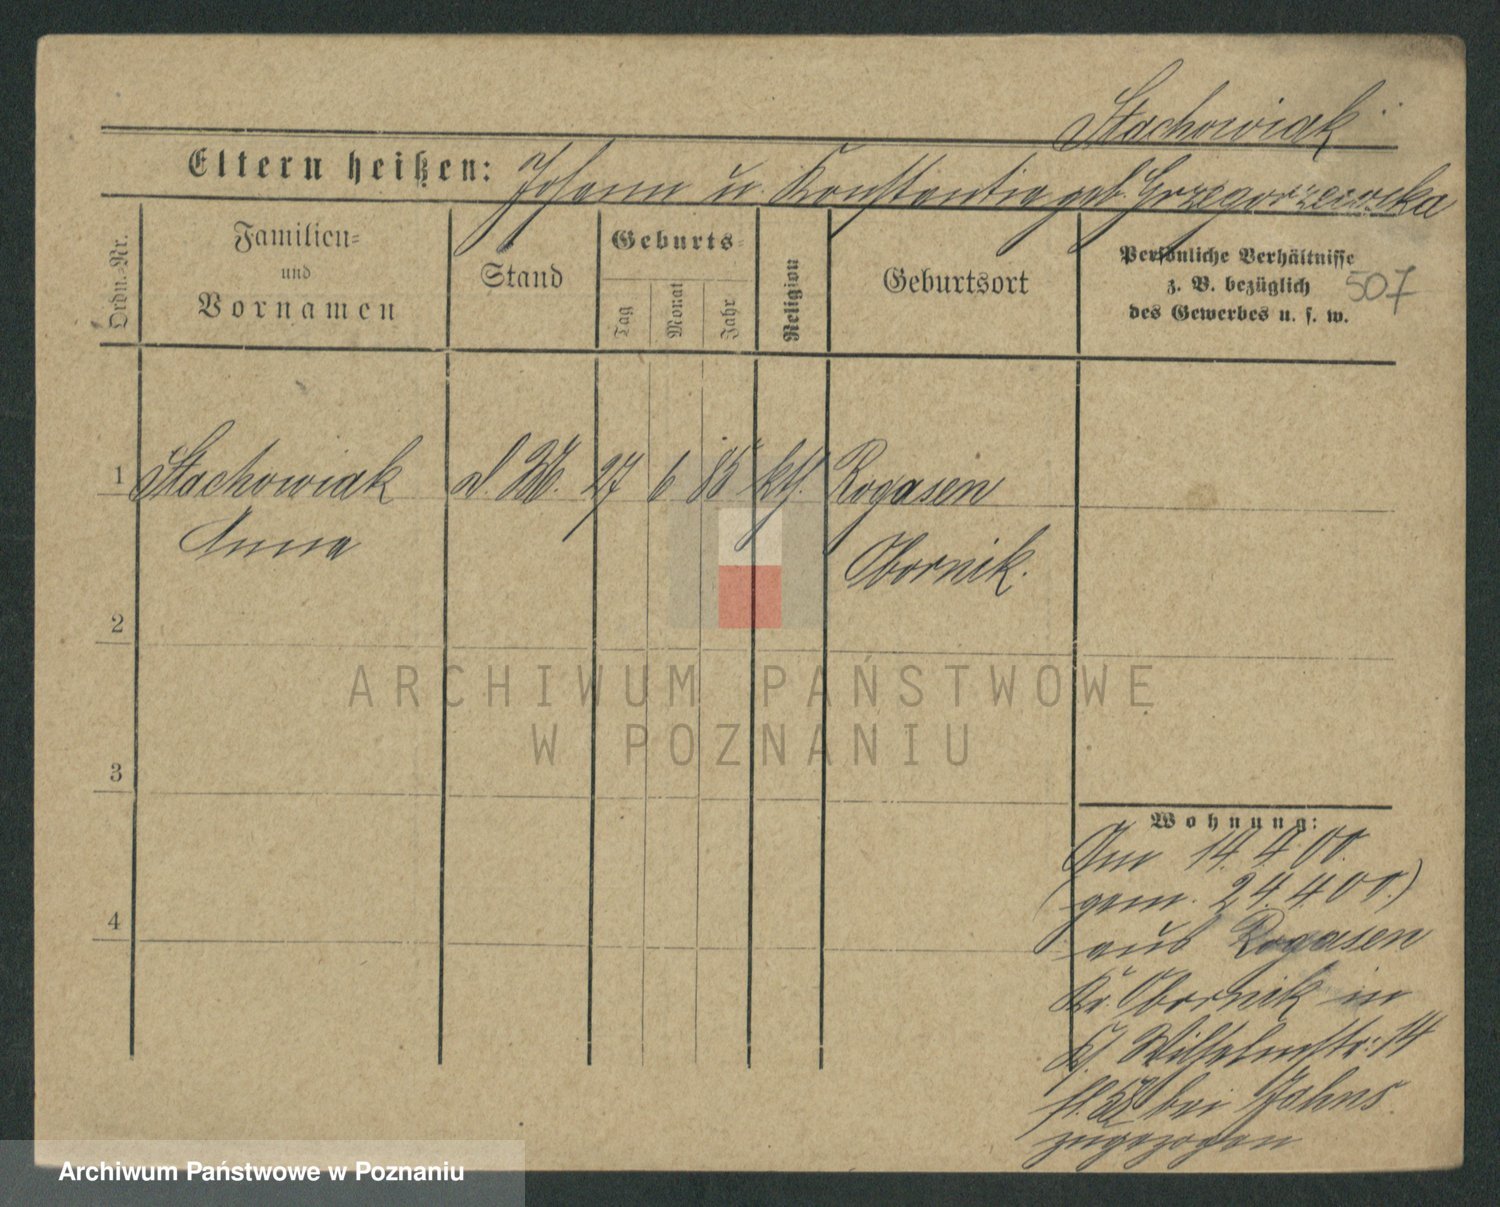 Stachowiak
Eltern heißen: Johann u. Konstantia geb. Grzegorzewska
Ordn.-Nr.
Familien-
und
Vornamen
Stand
Geburts-
Tag
Monat
Jahr
Religion
Geburtsort
Persönliche Verhältnisse
z. B. bezüglich
des Gewerbes u. s. w.
507
1 Stachowiak d. M. 27 6 85 kth. Rogasen
Anna Obornik.
2
3
4
Wohnung:
Am 14.4.00.
(gem. 24.4.00.)
aus Rogasen
Kr. Obornik in
Wilhelmstr. 14
bei Jahns
zugezogen
ARCHIWUM PAŃSTWOWE
W POZNANIU
Archiwum Państwowe w Poznaniu